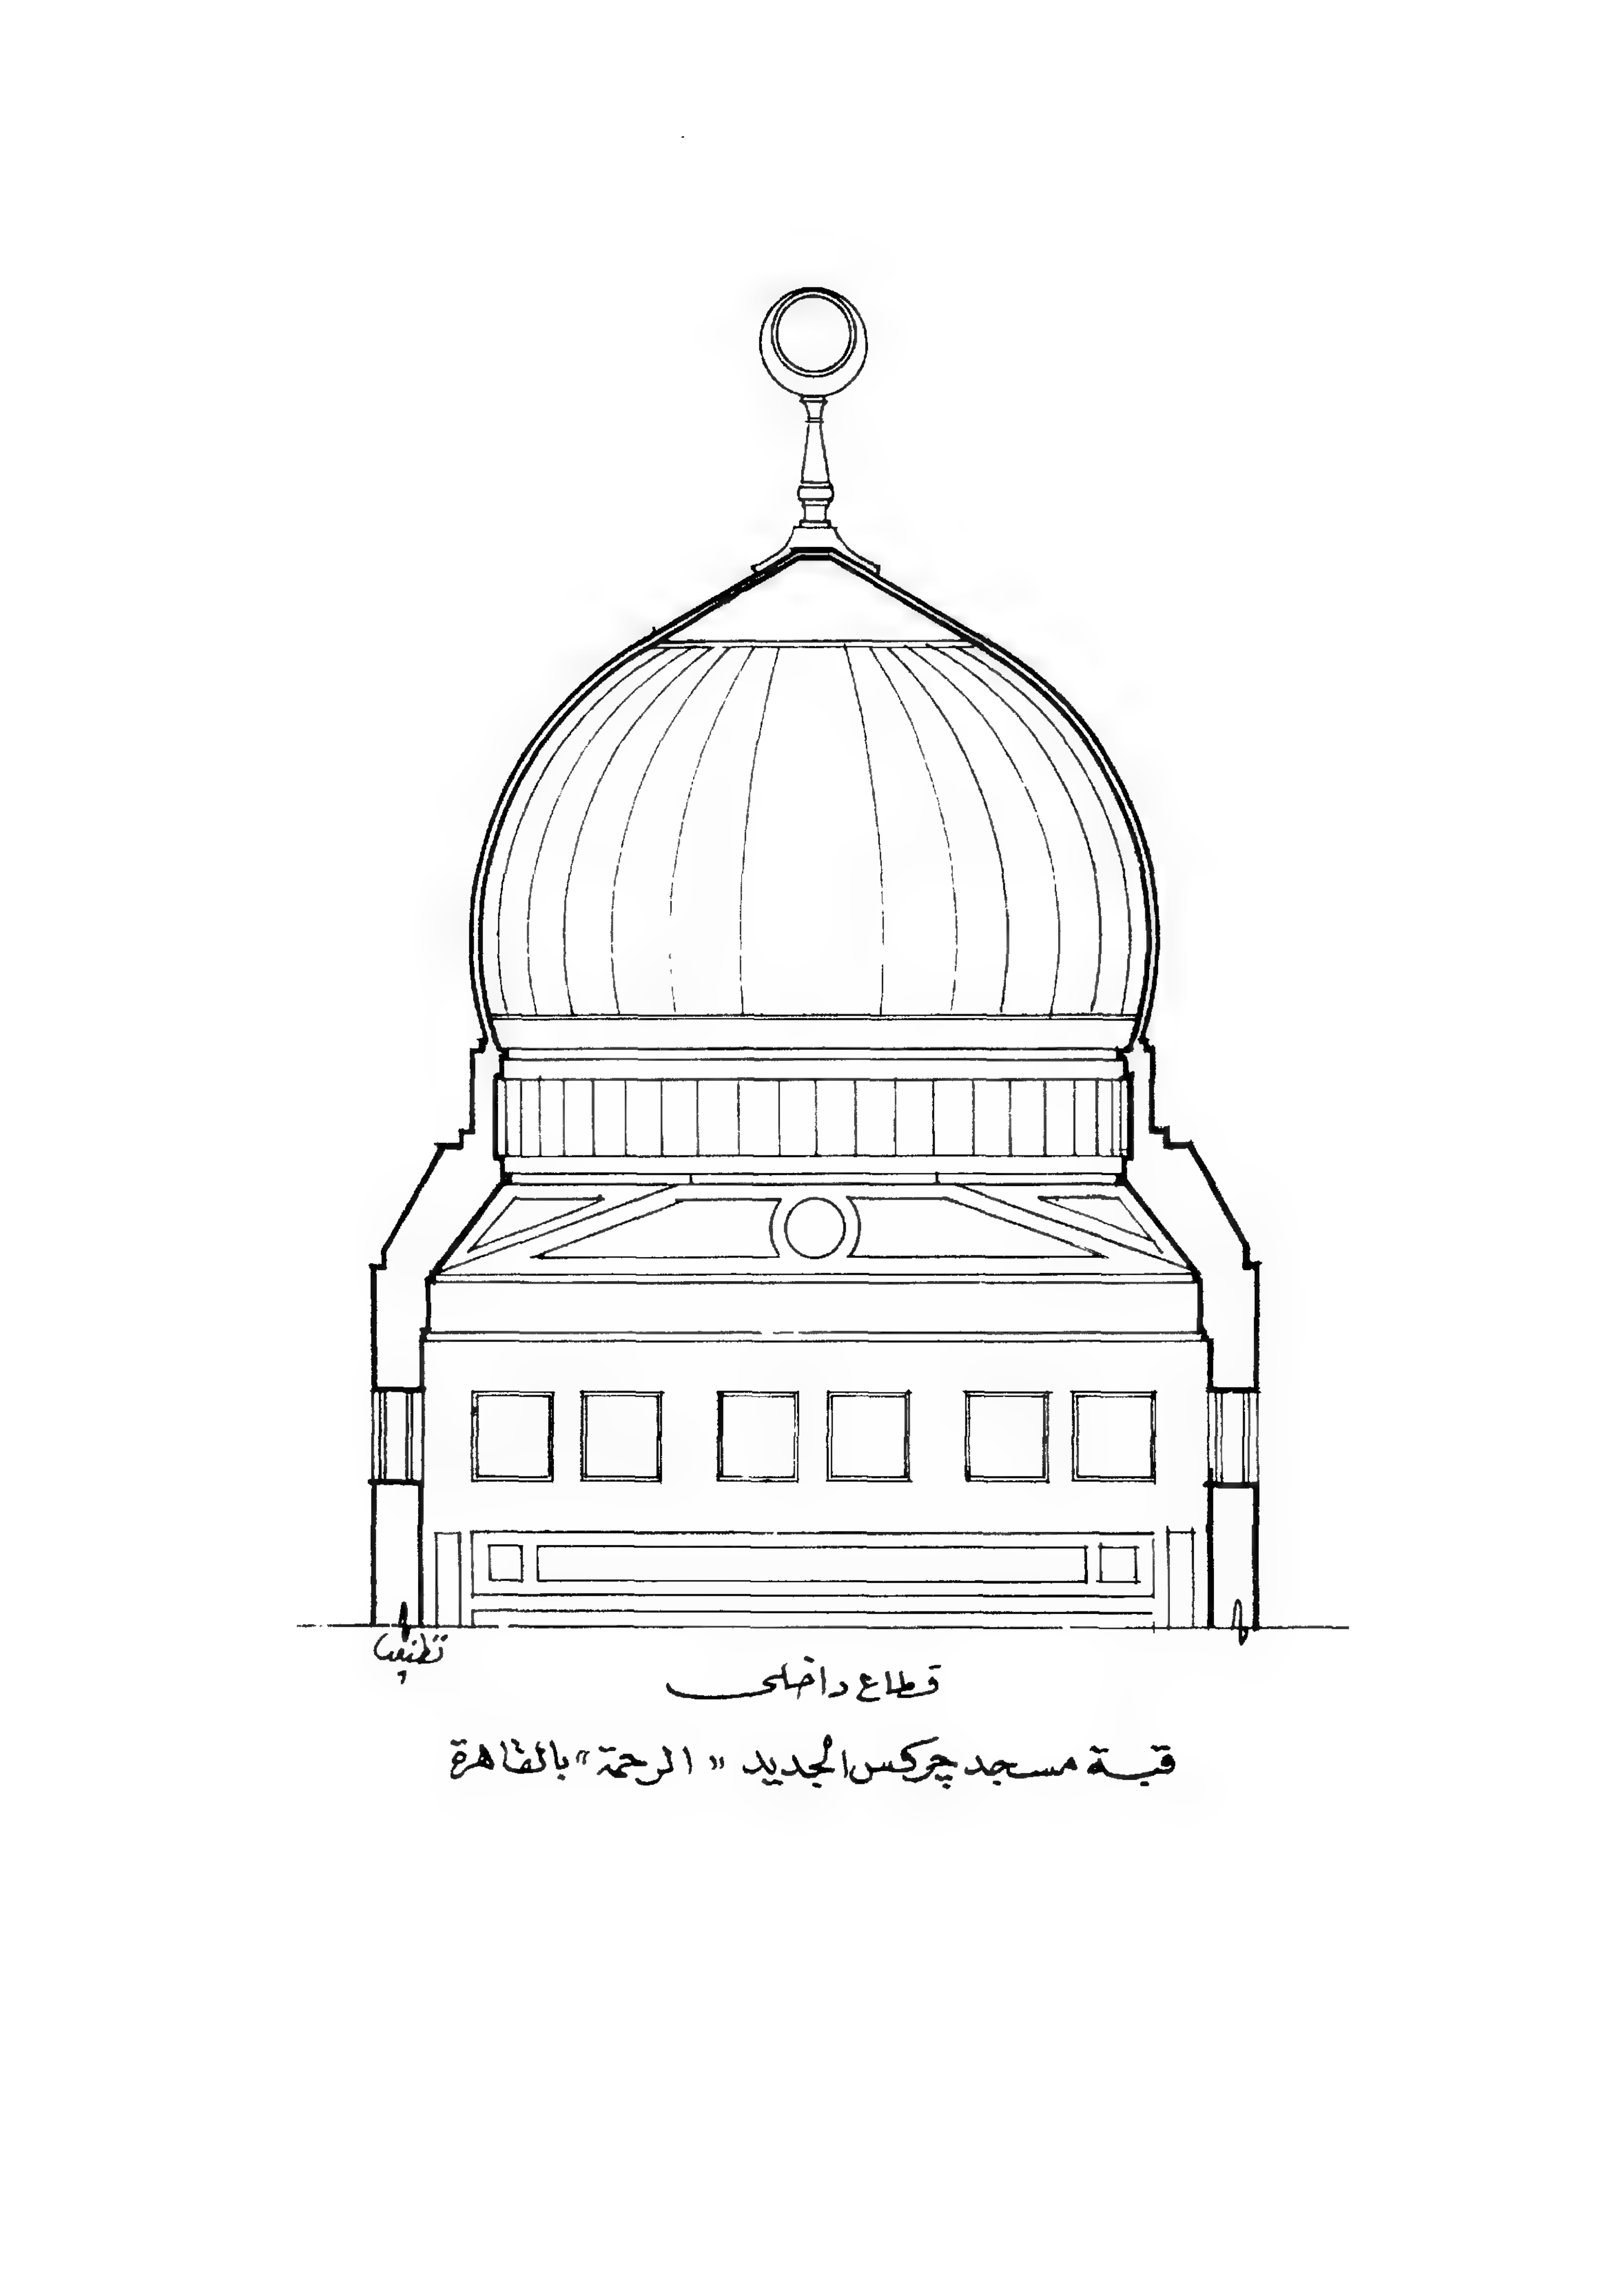 قطاع داخلى
قبة مسجد چركس الجديد "الرحمة" بالقاهرة